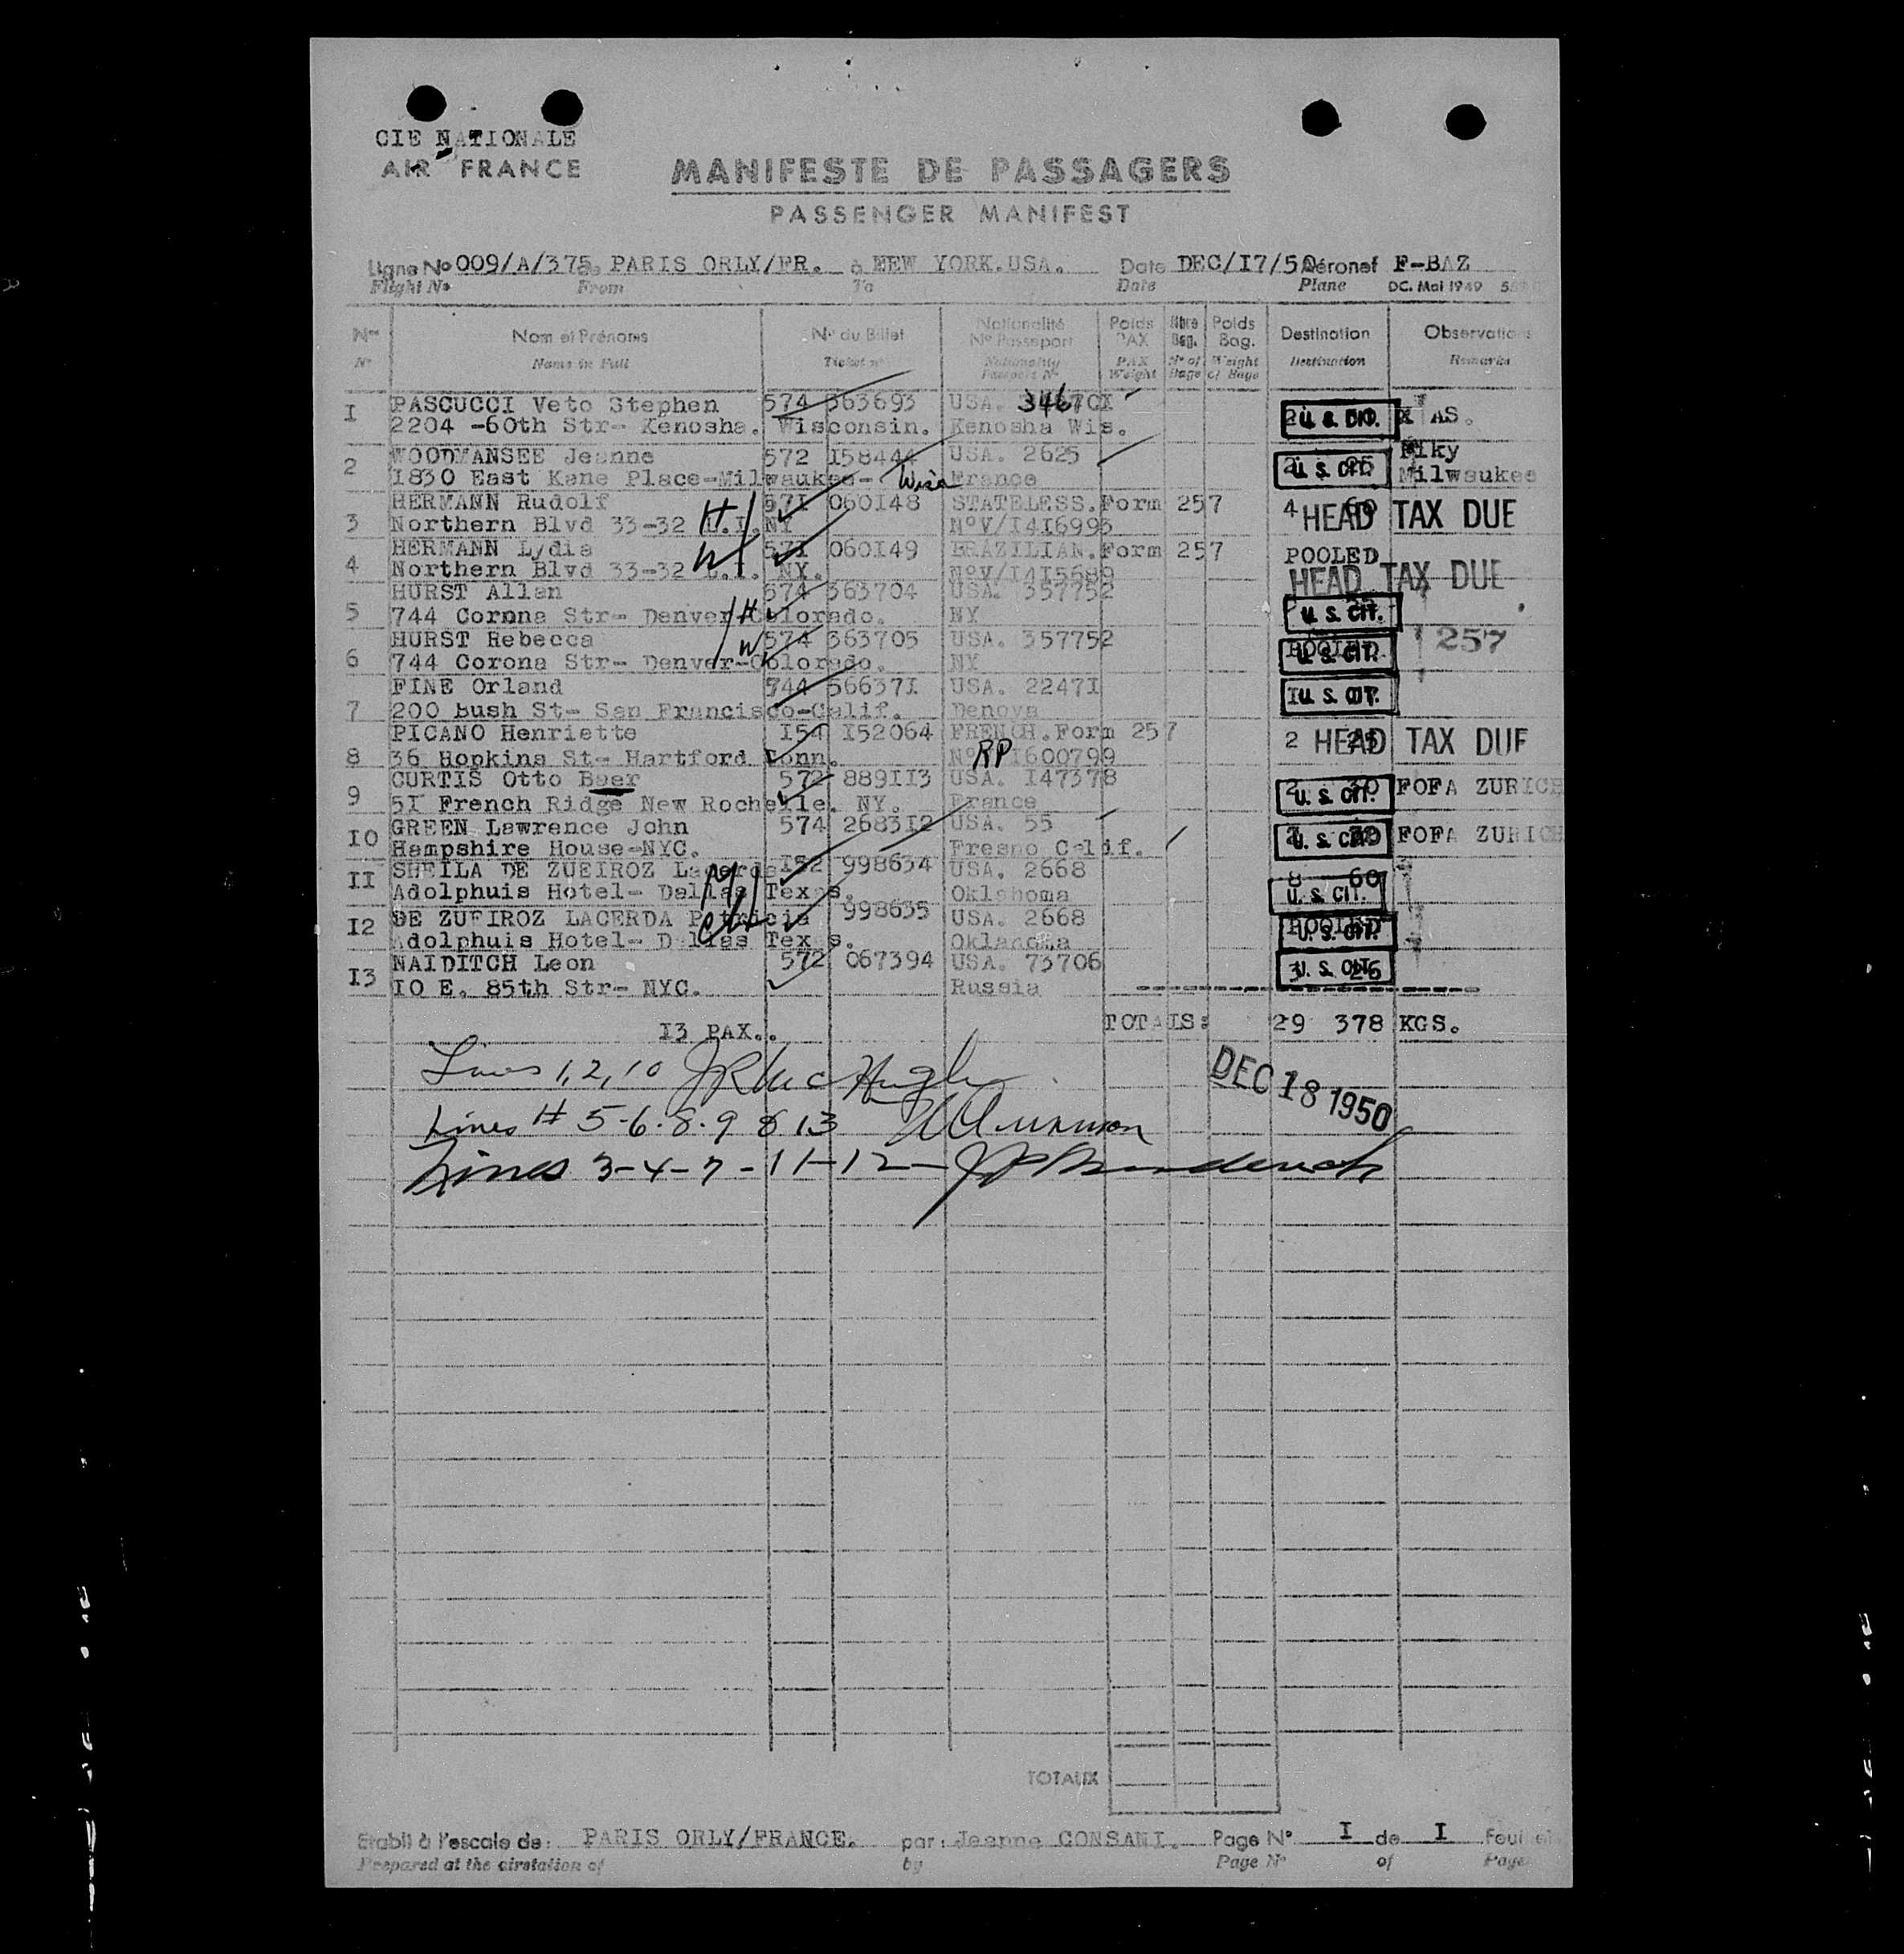 CIE NATIONALE
AIR FRANCE
MANIFESTE DE PASSAGERS
PASSENGER MANIFEST
Ligne No 009/A/375 de PARIS ORLY/FR. à NEW YORK.USA. Date DEC/I7/50 Aéronef F-BAZ
Flight No From To Date Plane DC. Mai 1949
Nos Nom et Prénoms No du Billet Nationalité No Passeport Poids PAX Nbre Bag. Poids Bag. Destination Observations
No Name in Full Ticket no Nationality Passport No PAX Weight No of Bags Weight of Bags Destination Remarks
I PASCUCCI Veto Stephen 574 363693 USA. U. S. CIT. AS.
2204 -60th Str- Kenosha. Wisconsin. Kenosha Wis.
2 WOODMANSEE Jeanne 572 I58444 USA. 2625 U. S. CIT.
I830 East Kane Place-Milwaukee- Wisc France Milwaukee
3 HERMANN Rudolf H/ 571 060I48 STATELESS.Form 257 4 60 HEAD TAX DUE
Northern Blvd 33-32 L.I.NY NoV/I4I6995
4 HERMANN Lydia W/ 571 060I49 BRAZILIAN.Form 257 POOLED
Northern Blvd 33-32 L.I. NY. NoV/I4I5689 HEAD TAX DUE
5 HURST Allan 574 363704 USA. 357752
744 Cornna Str- Denver-Colorado. /H NY U. S. CIT.
6 HURST Rebecca /W 574 363705 USA. 357752 POOLED U. S. CIT. 257
744 Corona Str- Denver-Colorado. NY
7 FINE Orland 744 56637I USA. 2247I U. S. CIT.
200 Bush St- San Francisco-Calif. Denova
8 PICANO Henriette I54 I52064 FRENCH.Form 257 2 HEAD TAX DUE
36 Hopkins St- Hartford Conn. No RP I600799
9 CURTIS Otto Baer 572 889II3 USA. I47378 U. S. CIT. FOFA ZURICH
5I French Ridge New Rochelle. NY. France
IO GREEN Lawrence John 574 2683I2 USA. 55 U. S. CIT. FOFA ZURICH
Hampshire House-NYC. Fresno Calif.
II SHEILA DE ZUEIROZ Lacerda M/ I52 998634 USA. 2668 8 60
Adolphuis Hotel- Dallas Texas. Oklahoma U. S. CIT.
I2 DE ZUEIROZ LACERDA Patricia 998635 USA. 2668 POOLED U. S. CIT.
Adolphuis Hotel- Dallas Texas. Oklahoma
I3 NAIDITCH Leon 572 067394 USA. 73706 U. S. CIT.
IO E. 85th Str- NYC. Russia
I3 PAX.. TOTALS: 29 378 KGS.
Lines 1, 2, 10 JR McHugh
DEC 18 1950
Lines # 5-6-8-9 & 13
Lines 3-4-7-11-12- JP Broderick
TOTAUX
Etabli à l'escale de: PARIS ORLY/FRANCE. par: Jeanne CONSANI. Page No I de I
Prepared at the airstation of by Page No of Page